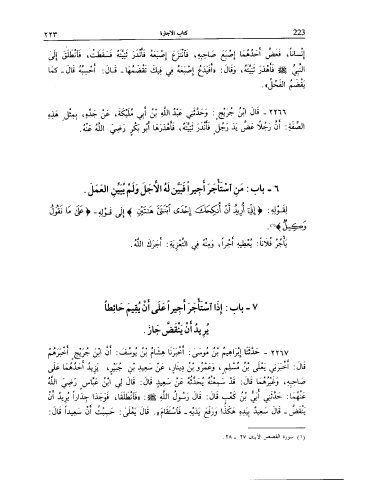 ٢٢٣ كتاب الإجارة 223
إِنْساناً، فَعَضَّ أَحَدُهُما إِصْبَعَ صاحِبِهِ، فَانْتَزَعَ إِصْبَعَهُ فَأَنْدَرَ ثَنِيَّتَهُ فَسَقَطَتْ، فَانْطَلَقَ إِلَى
النَّبِيِّ ﷺ فَأَهْدَرَ ثَنِيَّتَهُ، وَقالَ: «أَفَيَدَعُ إِصْبَعَهُ فِي فِيكَ تَقْضَمُها - قالَ: أَحْسِبُهُ قالَ - كما
يَقْضَمُ الْفَحْلُ».
٢٢٦٦ - قالَ ابْنُ جُرَيْجٍ: وَحَدَّثَنِي عَبْدُ اللَّهِ بْنُ أَبِي مُلَيْكَةَ، عَنْ جَدِّهِ، بِمِثْلِ هَذِهِ
الصِّفَةِ: أَنَّ رَجُلاً عَضَّ يَدَ رَجُلٍ فَأَنْدَرَ ثَنِيَّتَهُ، فَأَهْدَرَها أَبُو بَكْرٍ رَضِيَ اللَّهُ عَنْهُ.
٦ - باب: مَنِ اسْتَأْجَرَ أَجِيراً فَبَيَّنَ لَهُ الأَجَلَ وَلَمْ يُبَيِّنِ الْعَمَلَ.
لِقَوْلِهِ: ﴿إِنِّي أُرِيدُ أَنْ أُنْكِحَكَ إِحْدَى ابْنَتَيَّ هَاتَيْنِ﴾ إِلَى قَوْلِهِ - ﴿عَلَى مَا نَقُولُ
وَكِيلٌ﴾(١).
يَأْجُرُ فُلاناً: يُعْطِيهِ أَجْراً، وَمِنْهُ فِي التَّعْزِيَةِ: أَجَرَكَ اللَّهُ.
٧ - باب: إِذَا اسْتَأْجَرَ أَجِيراً عَلَى أَنْ يُقِيمَ حَائِطاً
يُرِيدُ أَنْ يَنْقَضَّ جَازَ.
٢٢٦٧ - حَدَّثَنَا إِبْراهِيمُ بْنُ مُوسَى: أَخْبَرَنا هِشامُ بْنُ يُوسُفَ: أَنَّ ابْنَ جُرَيْجٍ أَخْبَرَهُمْ
قالَ: أَخْبَرَنِي يَعْلَى بْنُ مُسْلِمٍ، وَعَمْرُو بْنُ دِينارٍ، عَنْ سَعِيدِ بْنِ جُبَيْرٍ، يَزِيدُ أَحَدُهُما عَلَى
صاحِبِهِ، وَغَيْرُهُما قالَ: قَدْ سَمِعْتُهُ يُحَدِّثُهُ عَنْ سَعِيدٍ، قالَ: قالَ لِي ابْنُ عَبَّاسٍ رَضِيَ اللَّهُ
عَنْهُما: حَدَّثَنِي أُبَيُّ بْنُ كَعْبٍ قالَ: قالَ رَسُولُ اللَّهِ ﷺ: «فَانْطَلَقا، فَوَجَدا جِداراً يُرِيدُ أَنْ
يَنْقَضَّ - قالَ سَعِيدٌ بِيَدِهِ هَكَذَا وَرَفَعَ يَدَيْهِ - فَاسْتَقامَ». قالَ يَعْلَى: حَسِبْتُ أَنَّ سَعِيداً قالَ:
(١) سورة القصص الآيتان ٢٧ - ٢٨.